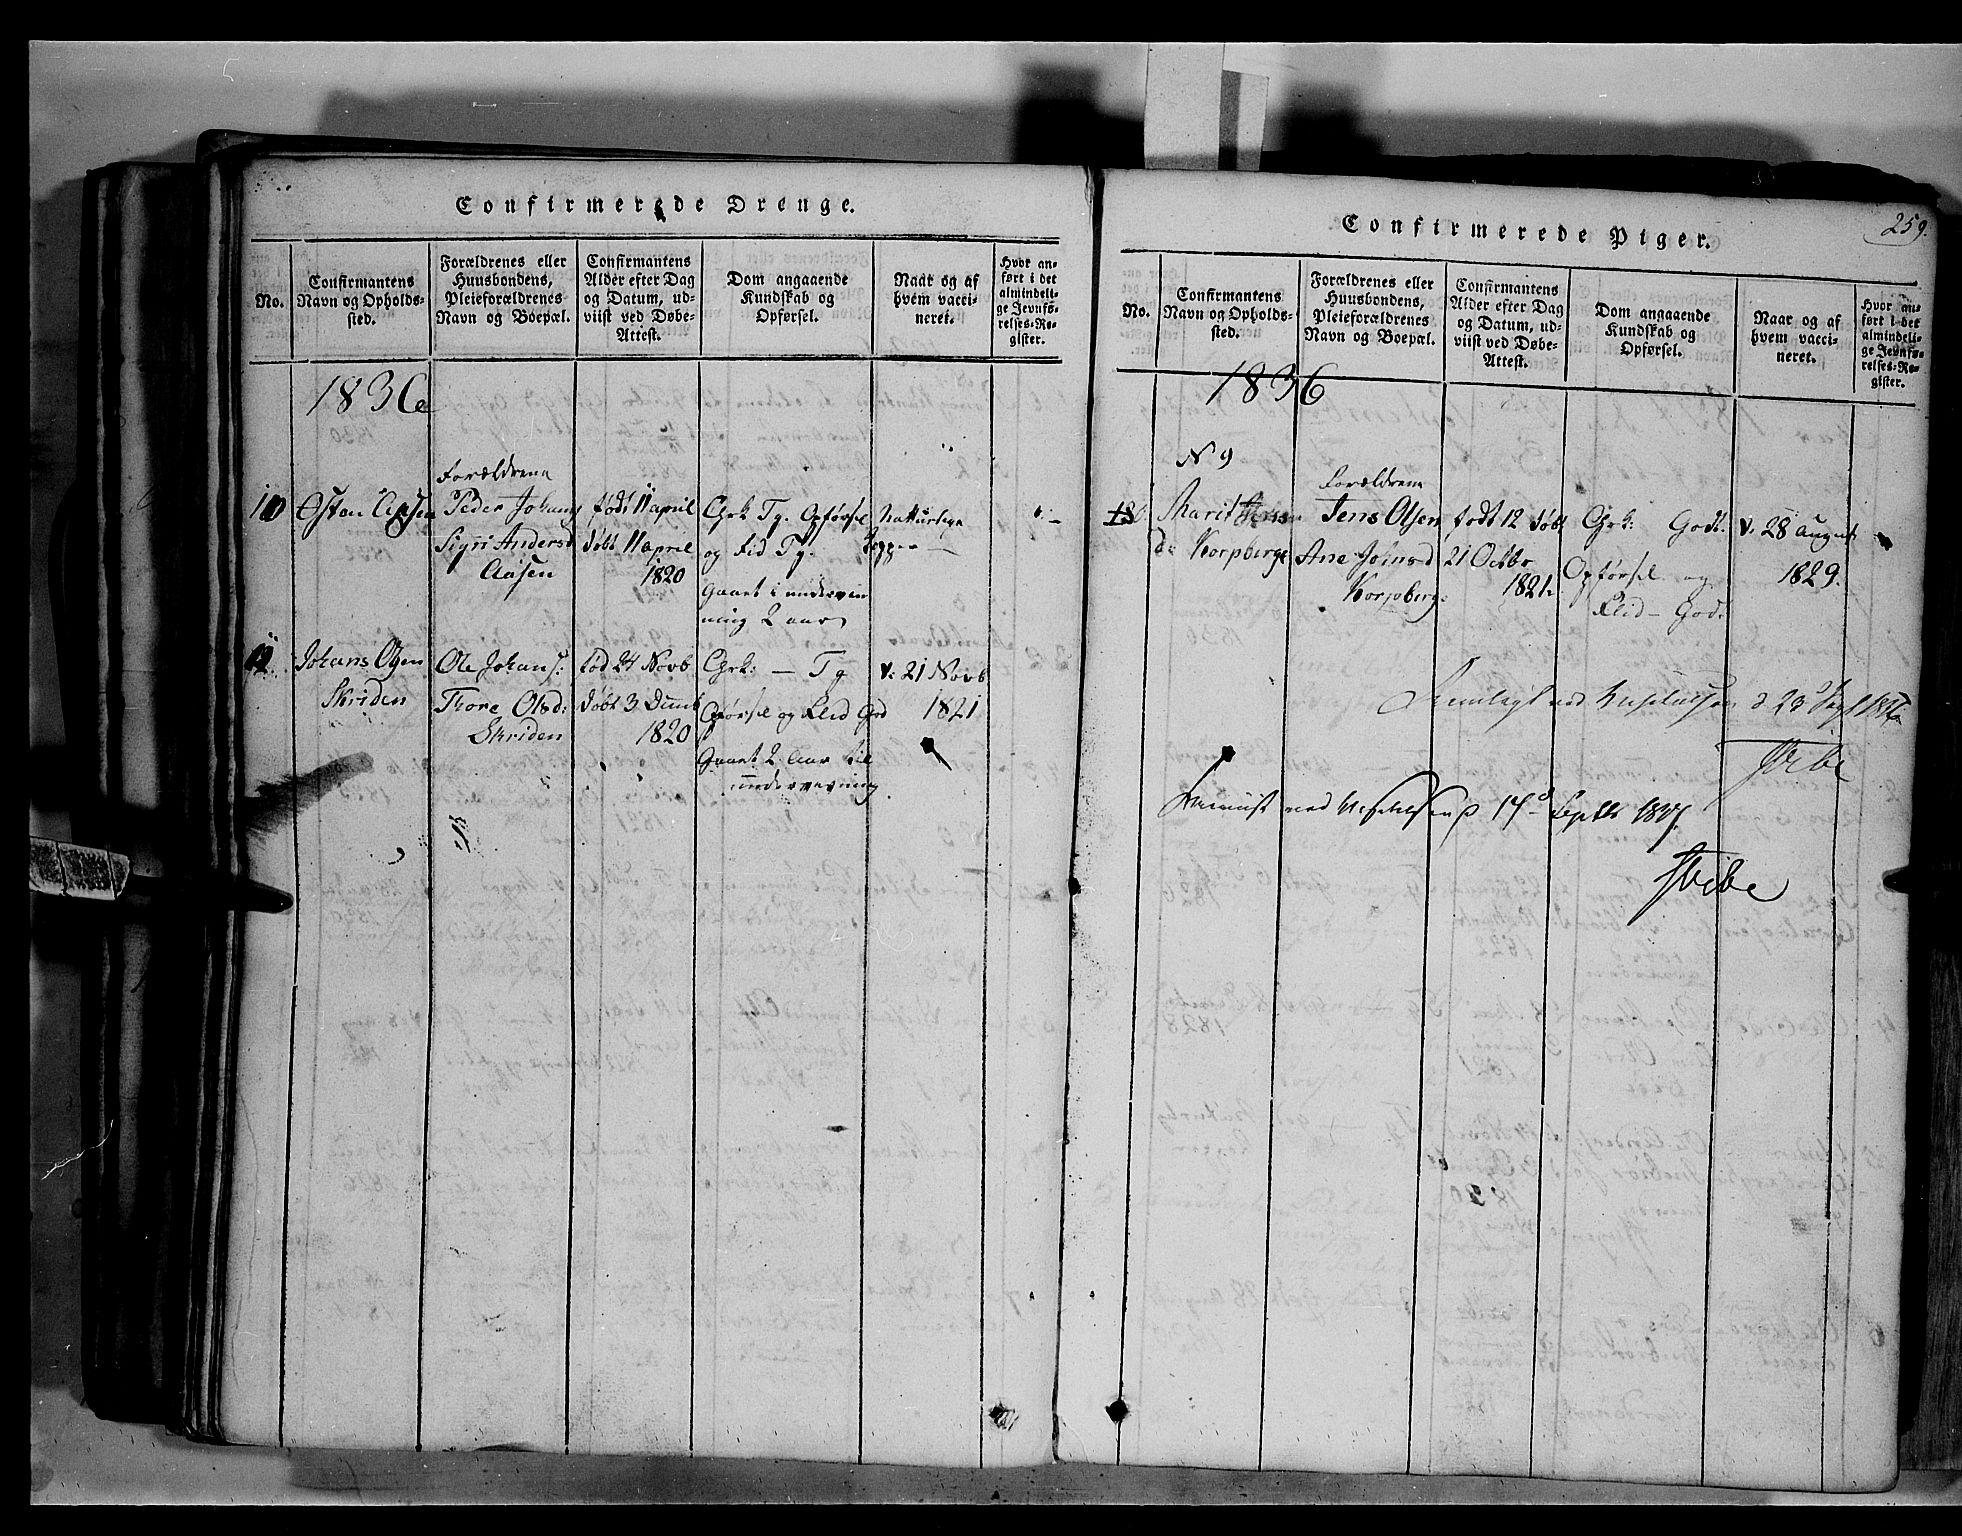 Confirmerede Drenge.
No.
Confirmantens
Navn og Opholds-
sted.
Forældrenes eller
Huusbondens,
Pleieforældrenes
Navn og Boepæl.
Confirmantens
Alder efter Dag
og Datum, ud-
viist ved Døbe-
Attest.
Dom angaaende
Kundskab og
Opførsel.
Naar og af
hvem vacci-
neret.
Hvor an-
ført i det
almindeli-
ge Jevnfø-
relses-Re-
gister.
1836
Østen Aasen
Forældrene
Peder Johans
Sigri Andersd
Aasen
født 11 april
døbt 11 april
1820
Chrk Tg. Opførsel
og Flid Tg.
Gaaet i underviis
ning 2 aar
Natturlige
Kopper
Johans Olsen
Skriden
Ole Johans:
Thore Olsd:
Skriden
fød 24 Novb
døbt 3 Decmb
1820
Chrk: — Tg
Opførsel og Flid God
Gaaet 2 Aar til
undervisning
v. 21 Novb
1821
Confirmerede Piger.
259.
No.
Confirmantens
Navn og Opholds-
sted.
Forældrenes eller
Huusbondens,
Pleieforældrenes
Navn og Boepæl.
Confirmantens
Alder efter Dag
og Datum, ud-
viist ved Døbe-
Attest.
Dom angaaende
Kundskab og
Opførsel.
Naar og af
hvem vacci-
neret.
Hvor an-
ført i det
almindeli-
ge Jevnfø-
relses-Re-
gister.
1836
N 9
Marit Jens
d: Korpberge
Forældrene
Jens Olsen
Ane Johnsd
Korpberge
født 12 døbt
21 Octbr
1821.
Chrk: Godt.
Opførsel og
Flid — God.
v. 28 August
1829.
ved 23 Sept
ved 17 Septbr 1837.